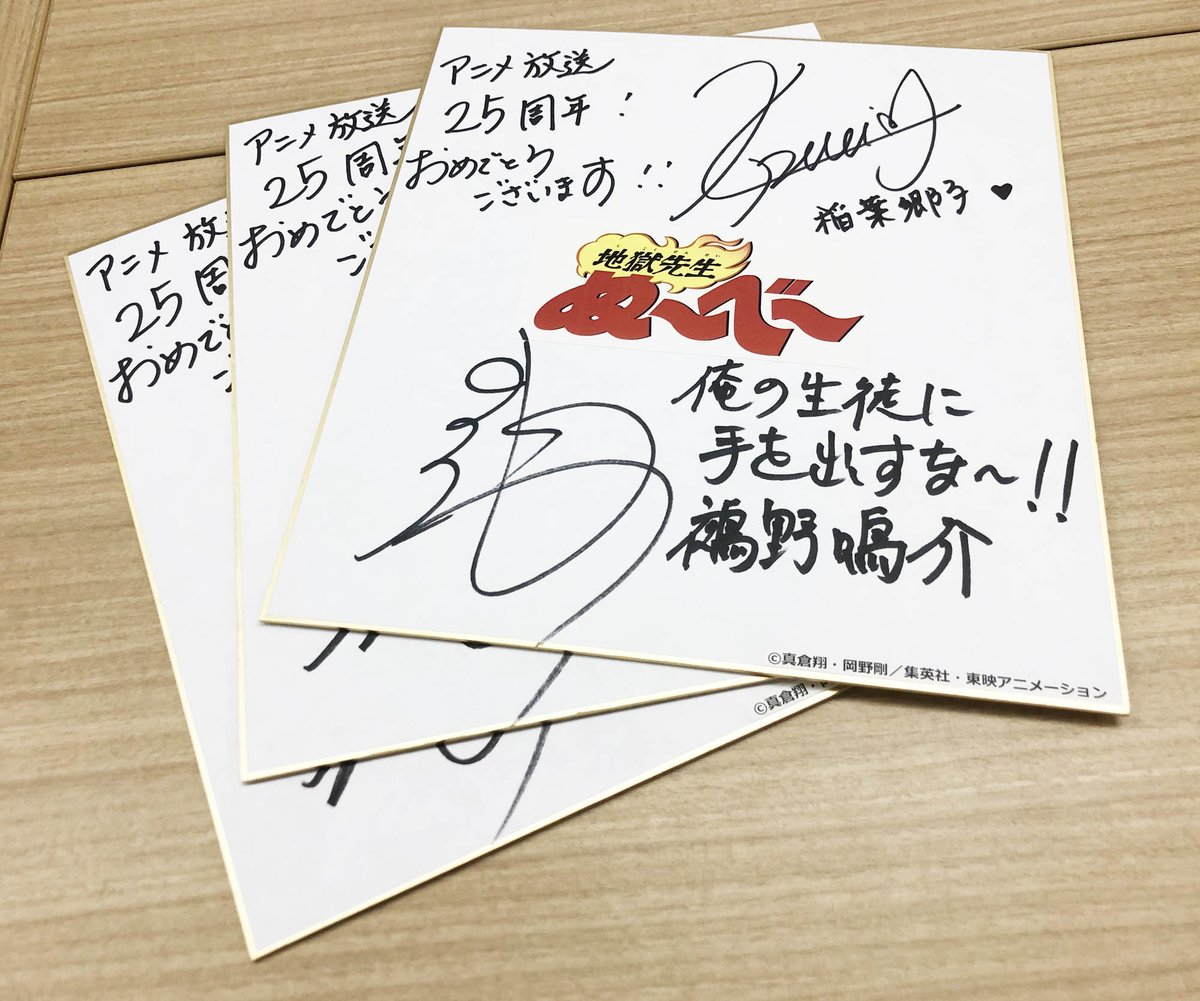 アニメ放送
25周年!
おめでとう
ございます!!
稲葉郷子♥
地獄先生
ぬ~べ~
俺の生徒に
手を出すな~!!
鵺野鳴介
©真倉翔・岡野剛/集英社・東映アニメーション
アニメ放送
25周年
おめでと
ご
アニメ放
25周
おめで
ご
©真倉翔・